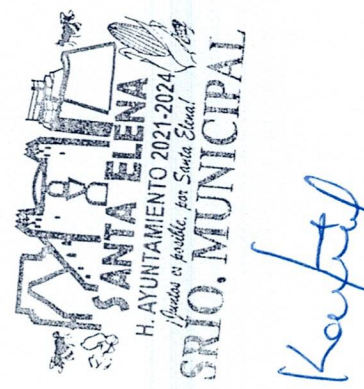 SANTA ELENA
H. AYUNTAMIENTO 2021-2024
¡Juntos es posible, por Santa Elena!
SRIO, MUNICIPAL